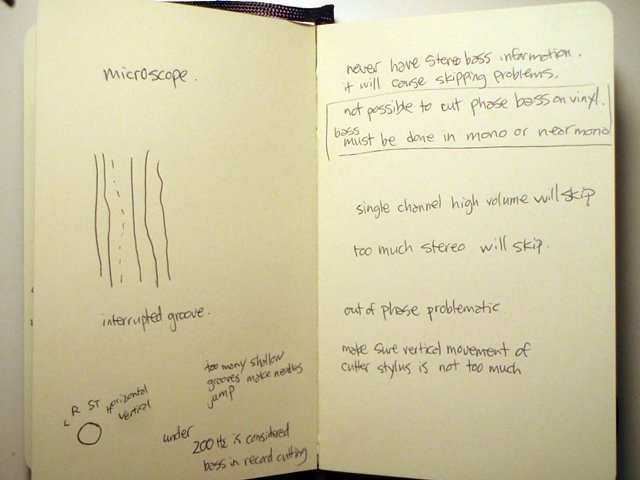 microscope.
interrupted groove.
too many shallow
grooves make needles
jump
L R ST Horizontal
vertical
under
200 Hz is considered
bass in record cutting
never have stereo bass information.
it will cause skipping problems.
not possible to cut phase bass on vinyl.
bass
must be done in mono or near mono
single channel high volume will skip
too much stereo will skip.
out of phase problematic
make sure vertical movement of
cutter stylus is not too much